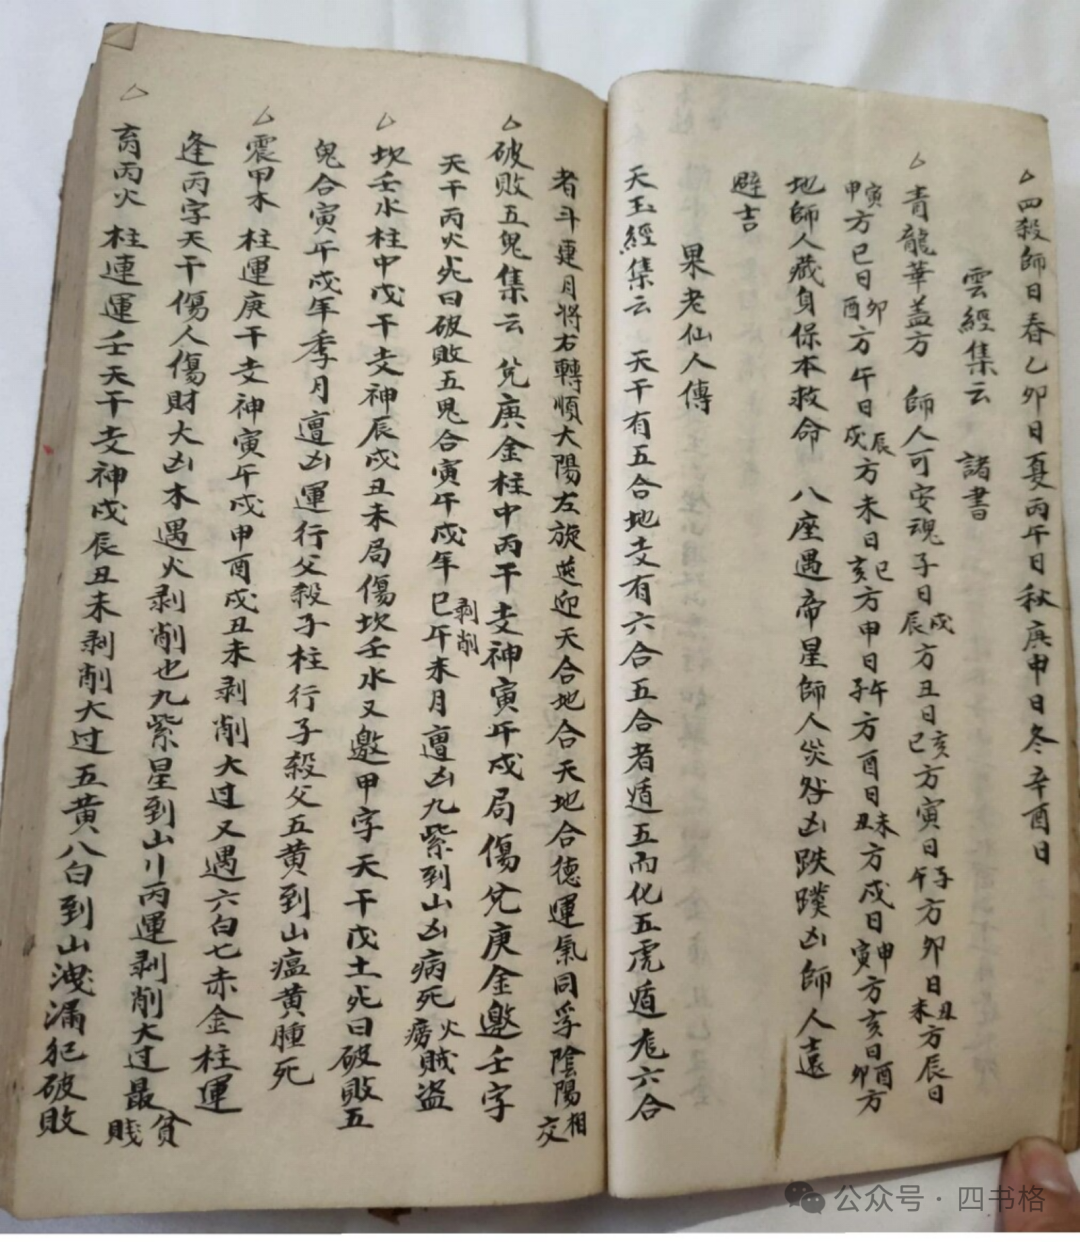 四殺師日春乙卯日夏丙午日秋庚申日冬辛酉日
雲經集云 諸書
青龍華盖方 師人可安魂子日戌辰方丑日亥巳方寅日子午方卯日丑未方辰日
寅甲方巳日卯酉方午日辰戌方未日巳亥方申日午子方酉日未丑方戌日申寅方亥日酉卯方
地師人藏身保本救命 八座遇帝星師人災咎凶跌蹼凶師人遠
避吉
果老仙人傳
天玉經集云 天干有五合地支有六合五合者遁五而化五虎遁尨六合
者斗建月將右轉順太陽左旋逆迎天合地合天地合德運氣同孚陰陽相交
破敗五鬼集云 兌庚金柱中丙干支神寅午戌局傷兌庚金邀壬字
天干丙火炗曰破敗五鬼合寅午戌年巳午未月剥削遭凶九紫到山凶病死火癆賊盜
坎壬水柱中戊干支神辰戌丑未局傷坎壬水又邀甲字天干戊土炗曰破敗五
鬼合寅午戌年季月遭凶運行父殺子柱行子殺父五黄到山瘟黄腫死
震甲木柱運庚干支神寅午戌申酉戌丑未剥削大过又遇六白七赤金柱運
逢丙字天干傷人傷財大凶木遇火剥削也九紫星到山川丙運剥削大过最貧賤
丙火柱連運壬天干支神戌辰丑未剥削大过五黄八白到山洩漏犯破敗
公众号·四书格